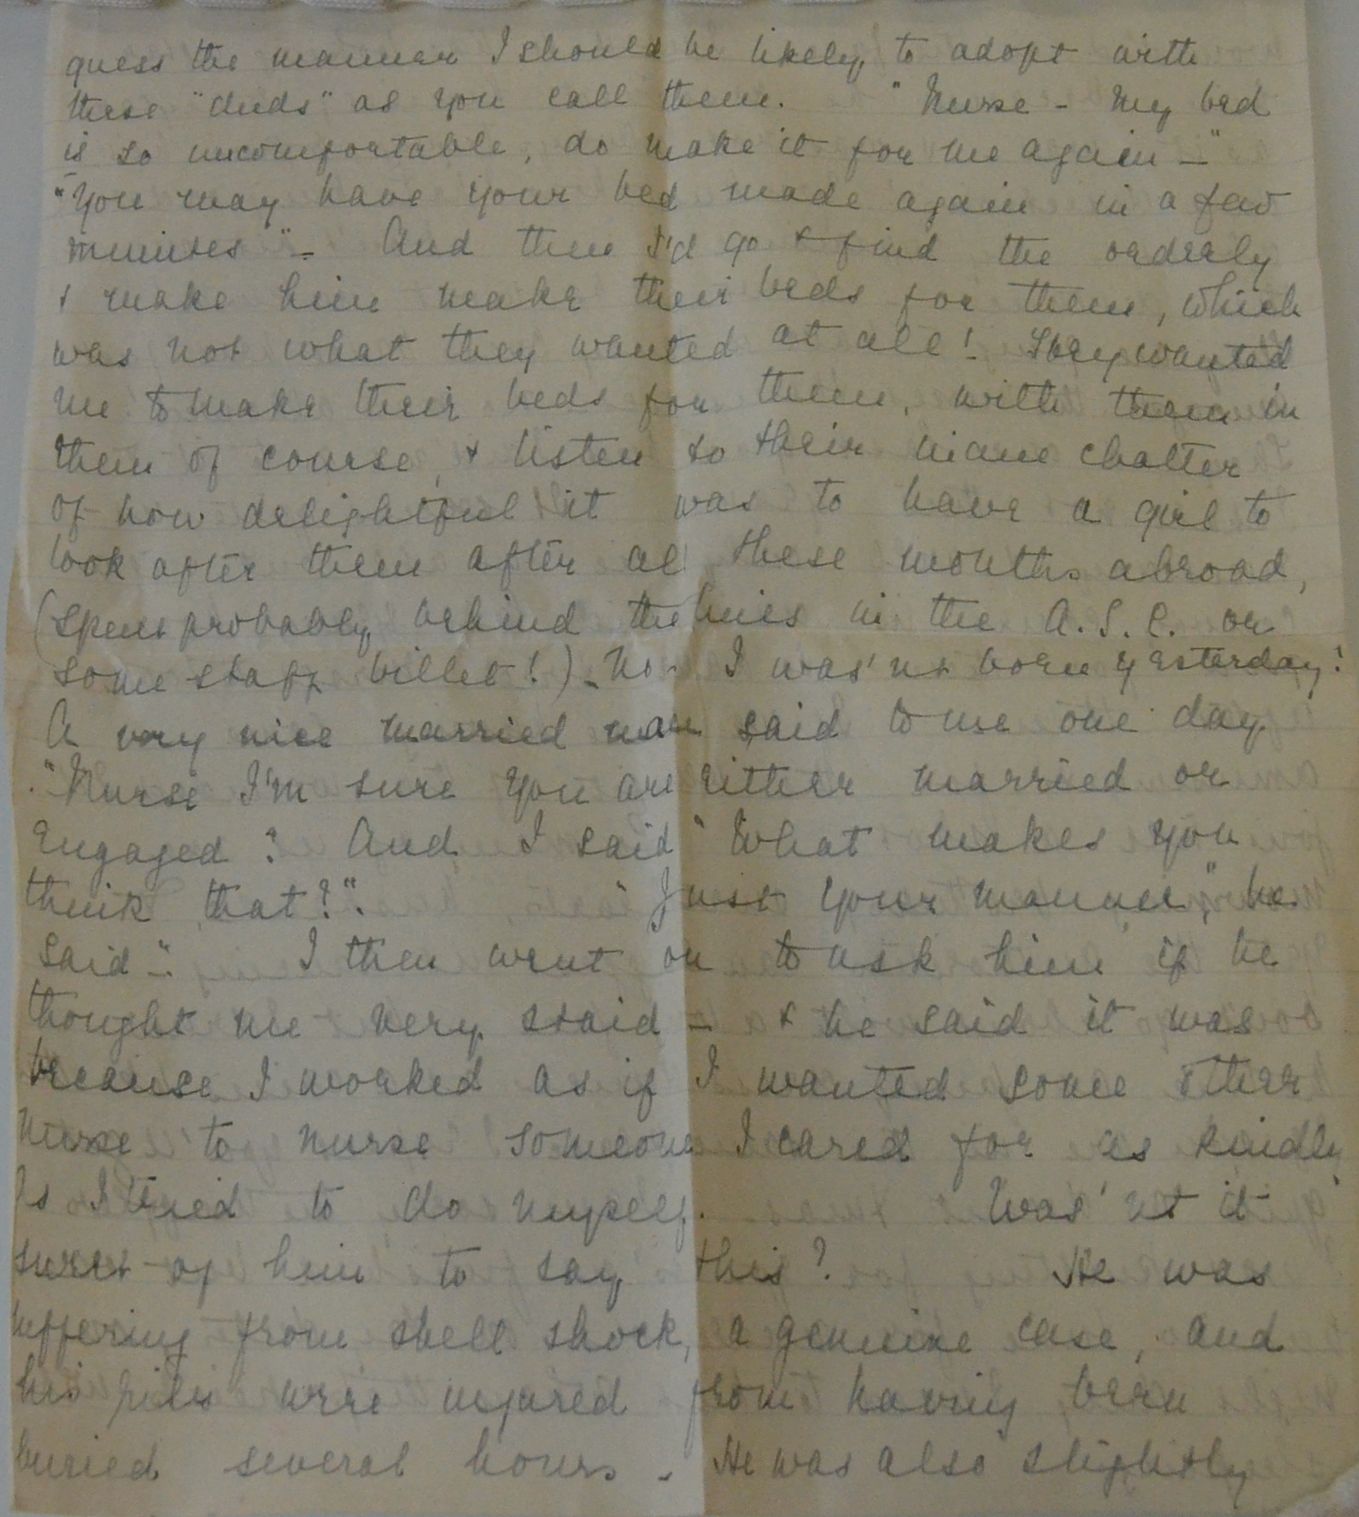 guess the manner I should be likely to adopt with
these "duds" as you call them. "Nurse - my bed
is so uncomfortable, do make it for me again -"
"You may have your bed made again in a few
minutes" - And then I'd go & find the orderly
& make him make their beds for them, which
was not what they wanted at all! They wanted
me to make their beds for them, with them in
them of course, & listen to their inane chatter
of how delightful it was to have a girl to
look after them after all these months abroad,
(spent probably behind the lines in the A.S.C. or
some staff billet!) - No - I was'nt born yesterday!
A very nice married man said to me one day
"Nurse I'm sure you are either married or
engaged? And I said "What makes you
think that?". "Just your manner," he
said". I then went on to ask him if he
thought me very staid - & he said it was
because I worked as if I wanted some other
nurse to nurse someone I cared for as kindly
as I tried to do myself. Was'nt it
sweet of him to say this? He was
suffering from shell shock, a genuine case, and
his ribs were injured from having been
buried several hours - He was also slightly